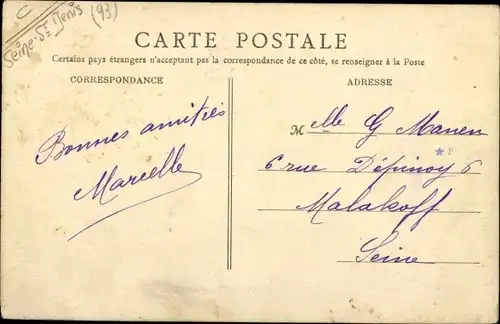 Seine-St Denis (93)
CARTE POSTALE
Certains pays étrangers n'acceptant pas la correspondance de ce côté, se renseigner à la Poste
CORRESPONDANCE
ADRESSE
Bonnes amitiés
Marcelle
Mlle G Manen
6 rue Dépinoy 6
Malakoff
Seine
* P